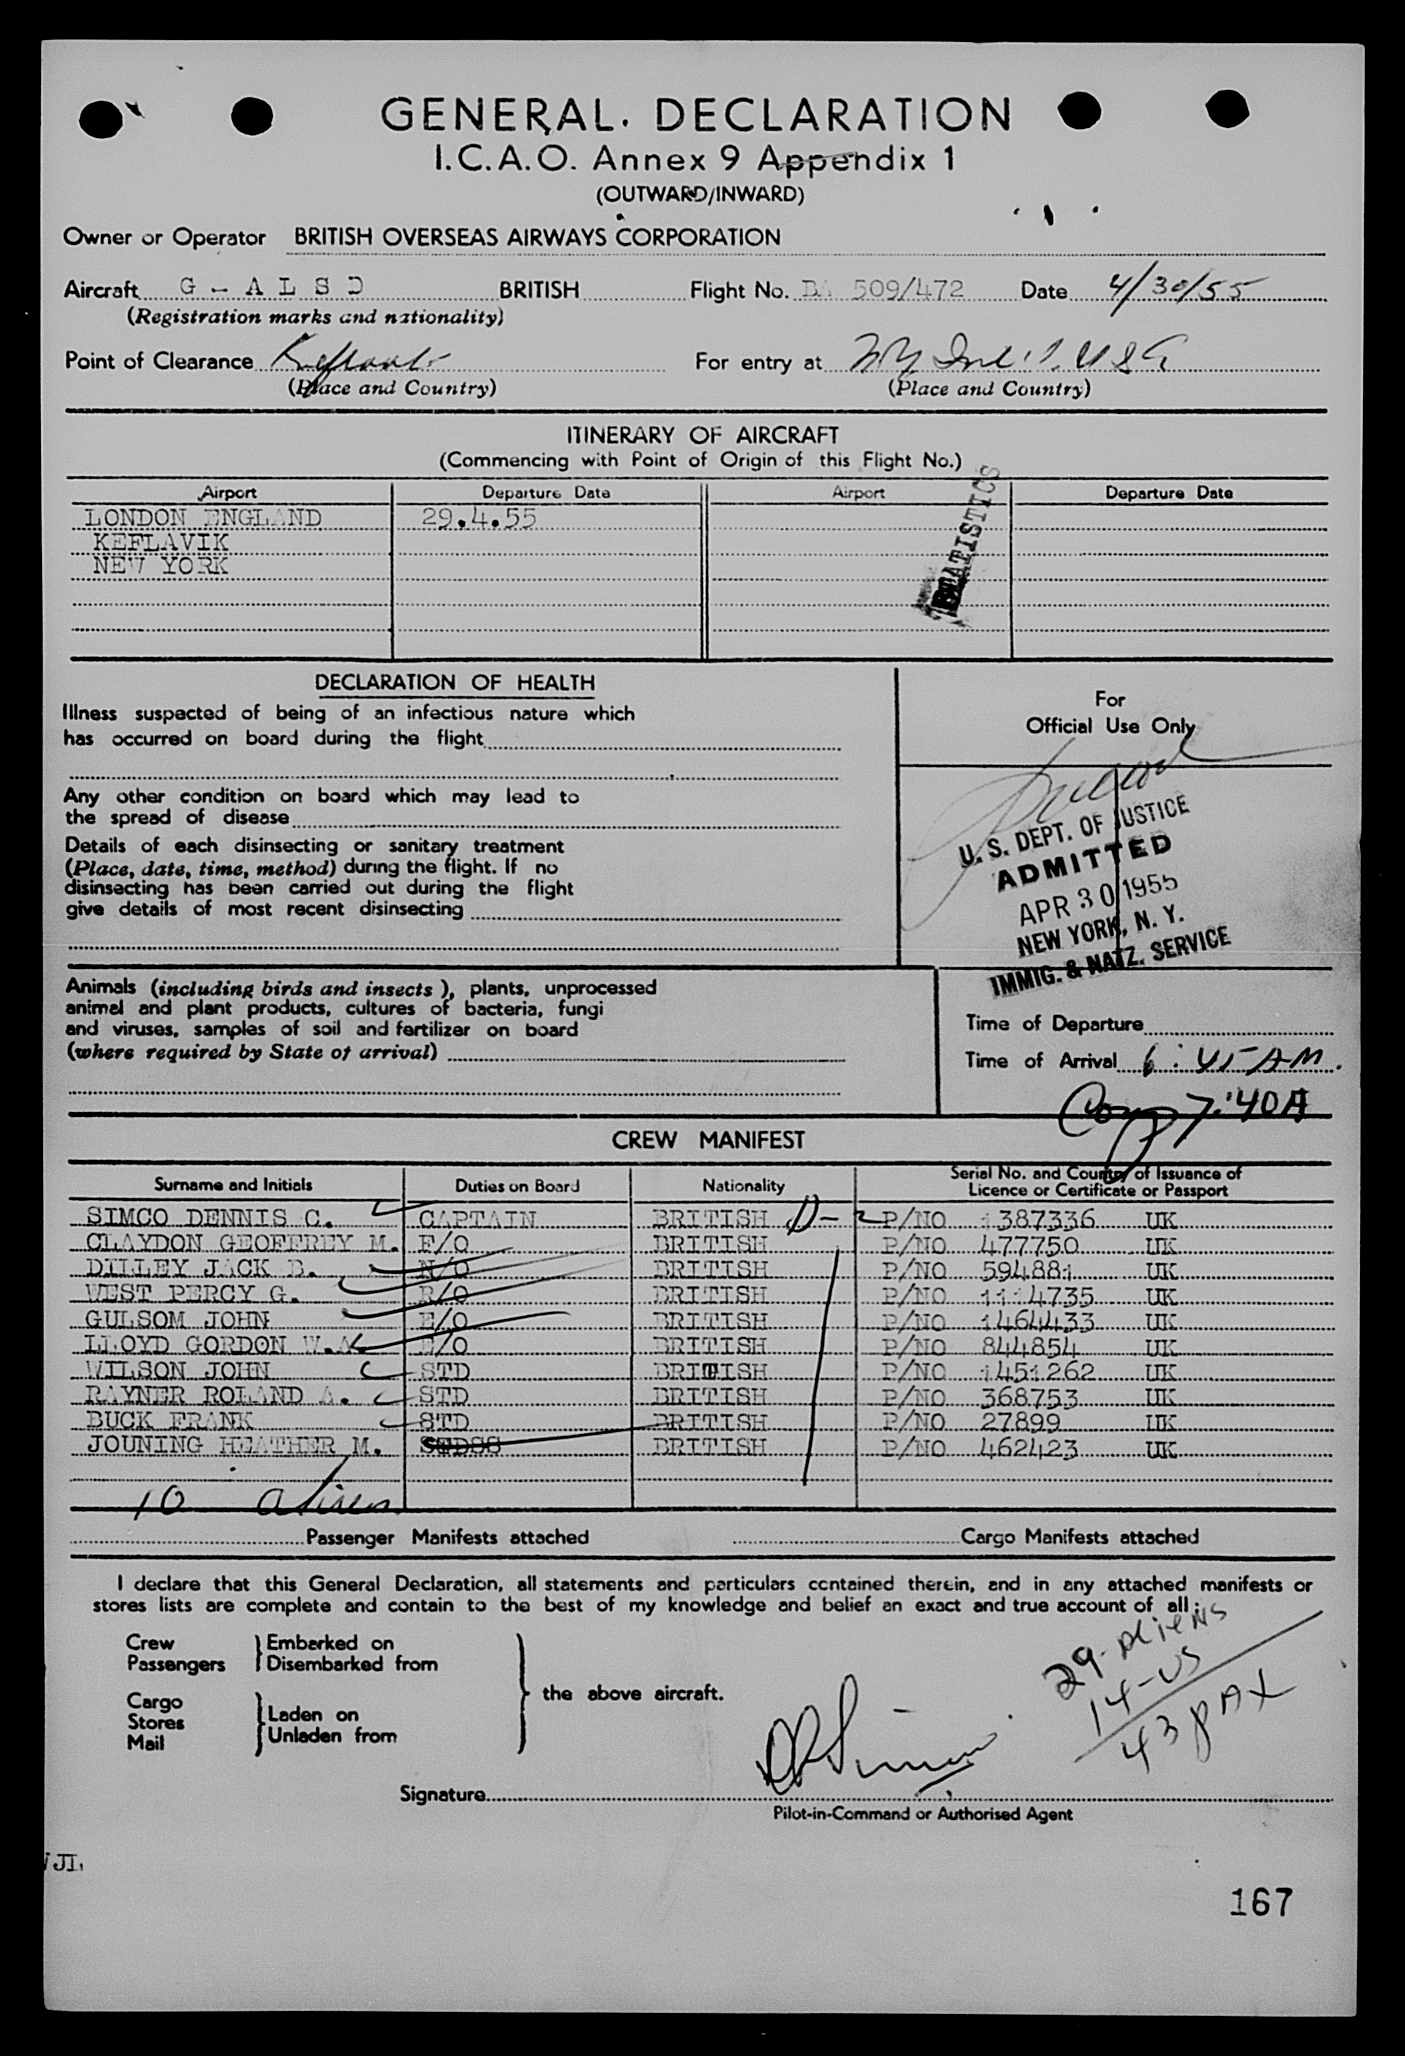 GENERAL DECLARATION
I.C.A.O. Annex 9 Appendix 1
(OUTWARD/INWARD)
Owner or Operator BRITISH OVERSEAS AIRWAYS CORPORATION
Aircraft G - A L S D BRITISH Flight No. BA 509/472 Date 4/30/55
(Registration marks and nationality)
Point of Clearance Keflavik For entry at NY Int'l. USA
(Place and Country) (Place and Country)
ITINERARY OF AIRCRAFT
(Commencing with Point of Origin of this Flight No.)
Airport Departure Date Airport Departure Date
LONDON ENGLAND 29.4.55
KEFLAVIK
NEW YORK
STATISTICS
DECLARATION OF HEALTH
Illness suspected of being of an infectious nature which
has occurred on board during the flight
Any other condition on board which may lead to
the spread of disease
Details of each disinsecting or sanitary treatment
(Place, date, time, method) during the flight. If no
disinsecting has been carried out during the flight
give details of most recent disinsecting
For
Official Use Only
U. S. DEPT. OF JUSTICE
ADMITTED
APR 30 1955
NEW YORK, N. Y.
IMMIG. & NATZ. SERVICE
Animals (including birds and insects ), plants, unprocessed
animal and plant products, cultures of bacteria, fungi
and viruses, samples of soil and fertilizer on board
(where required by State of arrival)
Time of Departure
Time of Arrival 6:45 AM.
7:40A
CREW MANIFEST
Surname and Initials Duties on Board Nationality Serial No. and Country of Issuance of
Licence or Certificate or Passport
SIMCO DENNIS C. CAPTAIN BRITISH D- P/NO 1387336 UK
CLAYDON GEOFFREY M. F/O BRITISH P/NO 477750 UK
DILLEY JACK B. N/O BRITISH P/NO 594881 UK
WEST PERCY G. R/O BRITISH P/NO 1114735 UK
GULSOM JOHN E/O BRITISH P/NO 1464433 UK
LLOYD GORDON W.A. E/O BRITISH P/NO 844854 UK
WILSON JOHN STD BRITISH P/NO 1451262 UK
RAYNER ROLAND A. STD BRITISH P/NO 368753 UK
BUCK FRANK STD BRITISH P/NO 27899 UK
JOUNING HEATHER M. STDSS BRITISH P/NO 462423 UK
10 aliens
Passenger Manifests attached Cargo Manifests attached
I declare that this General Declaration, all statements and particulars contained therein, and in any attached manifests or
stores lists are complete and contain to the best of my knowledge and belief an exact and true account of all :
Crew Embarked on
Passengers Disembarked from
the above aircraft.
Cargo
Stores Laden on
Mail Unladen from
29-Aliens
14-US
43 pax
Signature
Pilot-in-Command or Authorised Agent
167